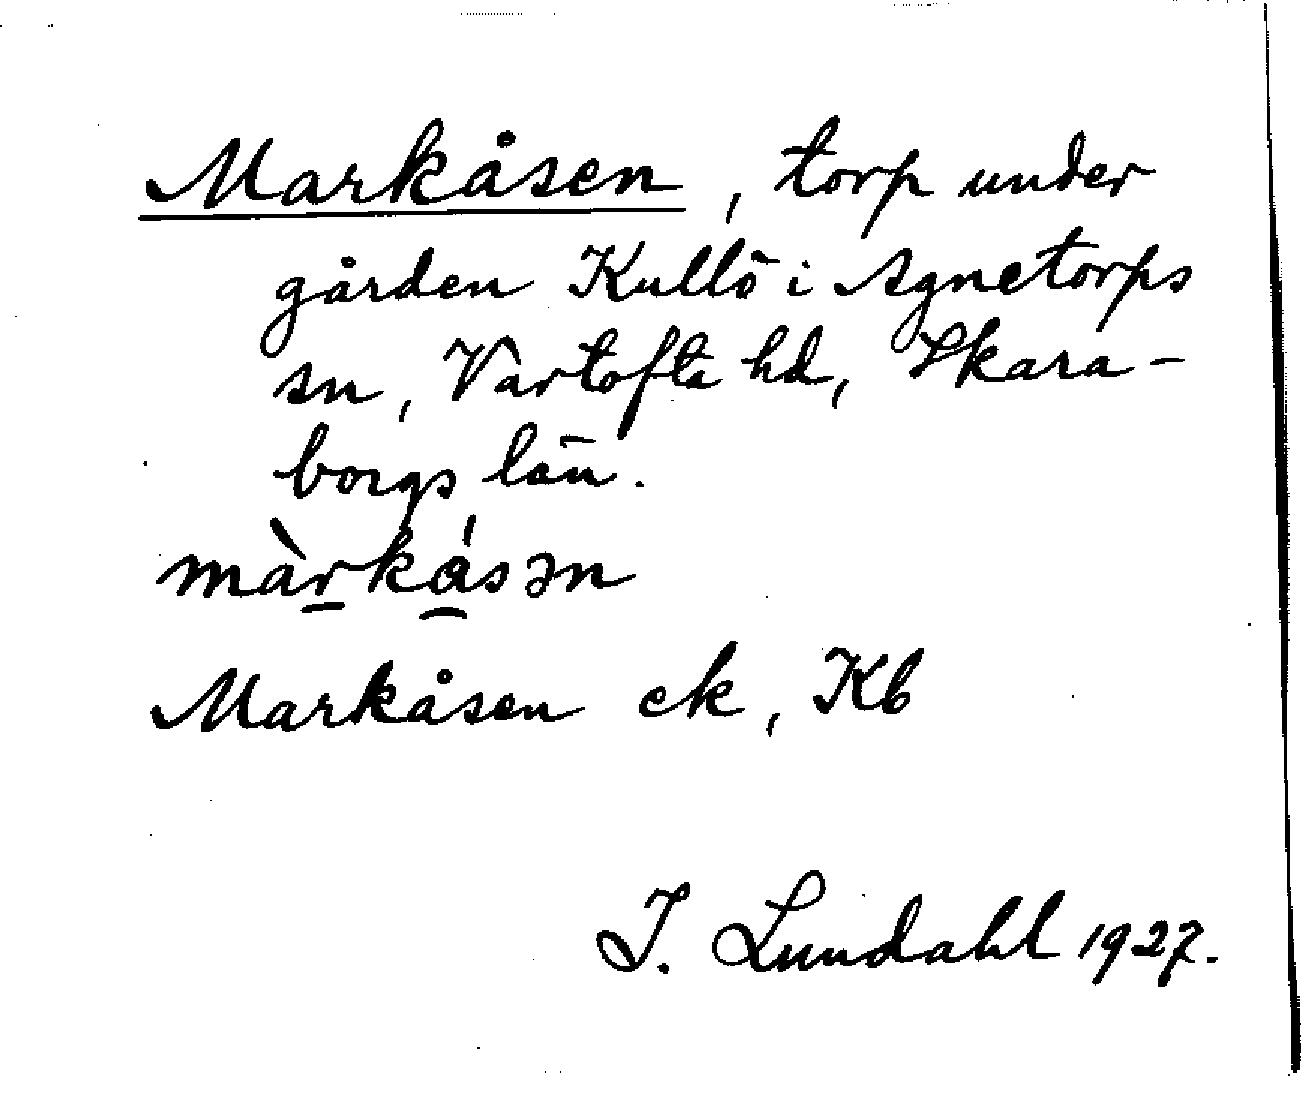 Markåsen, torp under
gården Kullö i Agnetorps
sn, Vartofta hd, Skara-
borgs län.
màrkåsən
Markåsen ek, Kb
I. Lundahl 1927.